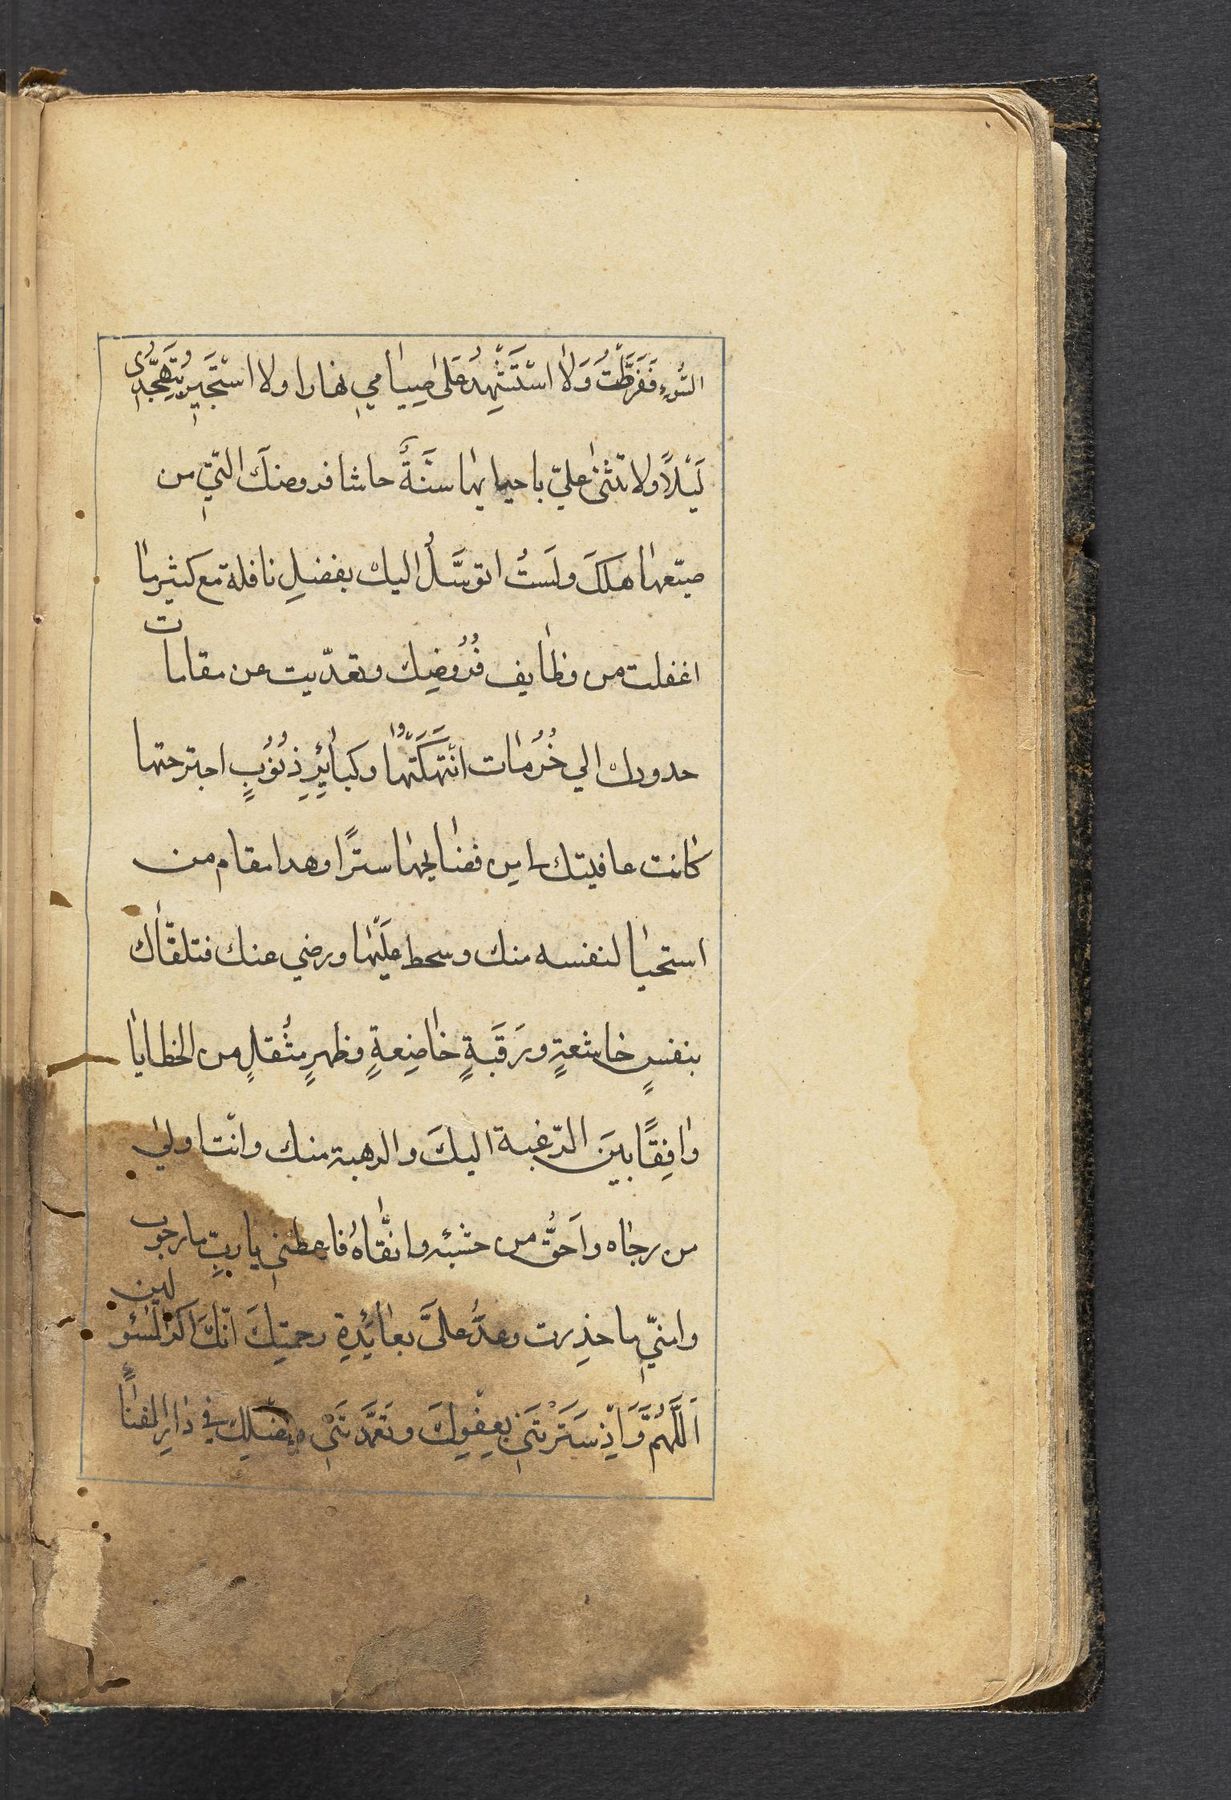 السُّوءِ فَفَرَّطْتُ وَلاٰ اسْتَشْهِدُ عَلىٰ صِيٰامي نهارا ولا اسْتَجيرُ بِتَهَجُّدى
لَيْلاً ولا تثنىٰ عليّ باحيايها سنَّةٌ حاشا فروضك التي من
ضيّعها هلكَ ولَستُ اتوسَّلُ اليك بفضلِ نافلة مع كثير ما
اغفلت من وظٰايف فُرُوضِك وتعدّيت عن مقامات
حدودك الي حُرُمٰات انْتَهَكْتُهٰا وكبٰائِرِ ذُنُوُبٍ اجترحتها
كانت عافيتك لي من فضٰايحها ستْرًا وهذا مقام من
استحيٰا لنفسه منك وسخط عَلَيْهٰا ورضي عنك فتلقّاك
بنفسٍ خاشعةٍ ورَقَبَةٍ خٰاضِعةٍ وظهرٍ مثُقلٍ من الخطايا
وٰاقِفًا بينَ الرّغبة اليكَ والرهبة منك وانت اولىٰ
من رجٰاه واَحَقُّ من خشيه واتقّٰاهُ فاعطني يا ربِّ ما رجوت
وامنّي ما حذرت وعُدْ عليَّ بعائِدةِ رحمتِكَ انّكَ اكرم المسئولين
اَللّٰهُمَّ وَاِذْ سَتَرْتَني بِعِفْوِكَ وتَغَمَّدْتَنْي بفضلك في دٰارِ الفنٰاً